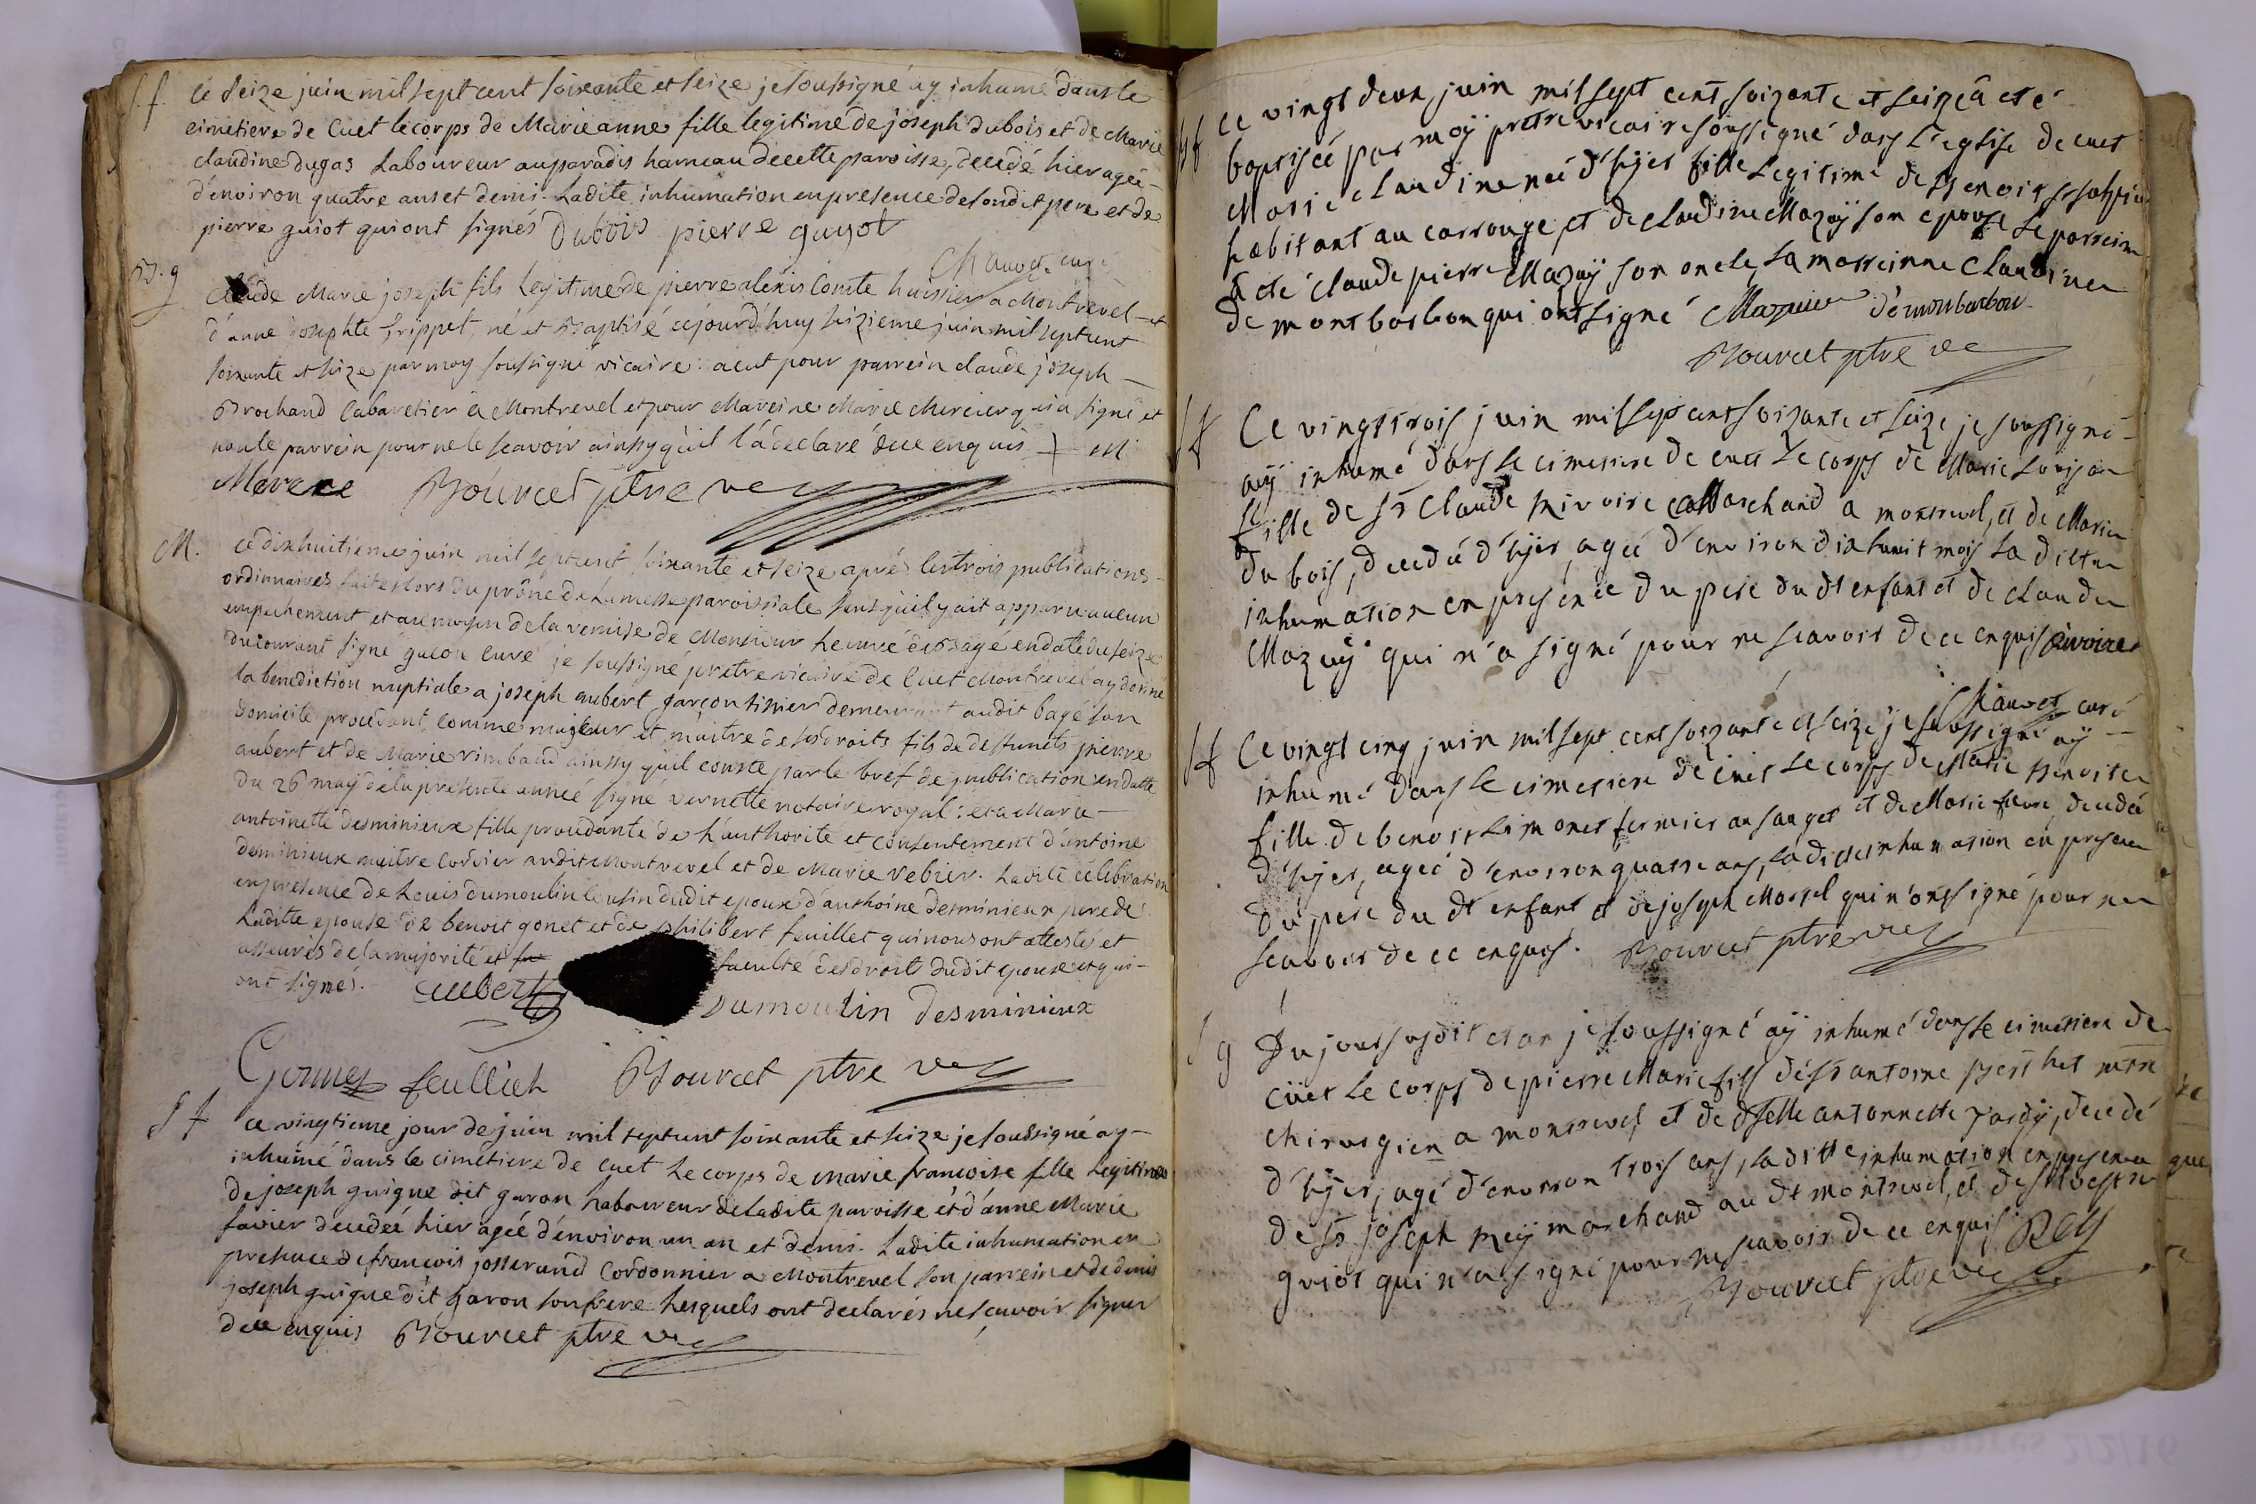 S. f.
Ce seize juin mil sept cent soixante et seize je soussigné ay inhumé dans le
cimetiere de Cuet le corps de Marie anne fille legitime de joseph dubois et de Marie
claudine dugas Laboureur au paradis hameau de cette paroisse, decedé hier agée
d'environ quatre ans et demi. Ladite inhumation en presence de sondit pere et de
pierre guiot qui ont signés Dubois pierre guyot
Chauvet curé
B. g
Claude Marie joseph fils Legitime de pierre alexis Comte huissier a Montrevel et
d'anne josephte frippet, né et Baptisé cejourd'huy seizieme juin mil sept cent
soixante et seize par moy soussigné vicaire: a eut pour parrein claude joseph
Brochand Cabaretier a Montrevel et pour Mareine Marie Mercier qui a signé et
non le parrein pour ne le scavoir ainsy qu'il l'a declaré de ce enquis + M
Bourcet ptre vic
M.
ce dix huitieme juin mil sept cent soixante et seize aprés les trois publications
ordinnaires faites lors du prône de la messe paroissiale sans qu'il y ait apparu aucun
empechement et au moyen de la remise de Monsieur le curé de Bagé en date du seize
du courant signé guion curé je soussigné pretre vicaire de Cuet Montrevel ay donné
la benediction nuptiale a joseph aubert garçon tissier demeurant audit bagé son
domicile procedant comme majeur et maitre de ses droits fils de deffunts pierre
aubert et de Marie rimbaud ainsy qu'il conste par le bref de publication en datte
du 26 may de la presente année signé vernette notaire royal: et a Marie
antoinette desminieux fille procedante de l'authorité et consentement d'antoine
desminieux maitre Cordier audit Montrevel et de Marie rebier. Ladite celebration
en presence de Louis dumoulin cousin dudit epoux d'anthoine desminieux pere de
Ladite epouse de benoit gonet et de philibert feuillet qui nous ont attesté et
asseurés de la majorité et
faculté des droits dudit epoux et qui
ont signés. aubert Dumoulin desminieux
Gonnet feullieh Bourcet ptre vic
S f
ce vingtieme jour de juin mil sept cent soixante et seize je soussigné ay
inhumé dans le cimetiere de Cuet le corps de marie francoise fille Legitime
de joseph guigue dit garon Laboureur de Ladite paroisse et d'anne Marie
favier decedeé hier agée d'environ un an et demi. Ladite inhumation en
presence de francois josserand Cordonnier a Montrevel son parrein et de denis
joseph guigue dit garon son frere lesquels ont declarés ne scavoir signer
de ce enquis Bourcet ptre vic
B f
Ce vingt deux juin mil sept cent soixante et seize a eté
baptisée par moÿ pretre vicaire soussigné dans l'eglise de cuet
Marie claudine neé d'hÿer fille Legitime de Benoit
habitant au carrouge, et de claudine Mazuÿ son epouse Le parrein
a eté claude pierre Mazuÿ son oncle, La marreinne Claudine
de montbarbon qui ont signé Mazuier démonbarbon
Bourcet ptre vic
S f
Ce vingt trois juin mil sept cent soixante et seize je soussigné
aÿ inhumé dans Le cimetiere de cuet Le corps de Marie Louise
fille de Sr Claude Rivoire Marchand a montrevel, et de Marie
du bois, decedeé d'hÿer, ageé d'environ dix huit mois La ditte
inhumation en presence du pere du dt enfant et de claude
Mazuÿ qui n'a signé pour ne scavoir de ce enquis Rivoire
Chauvet curé
S f
Ce vingt cinq juin mil sept cent soixante et seize je soussigné aÿ
inhumé dans Le cimetiere de cuet Le corps de Marie Benoite
fille de benoit Limonet fermier au sauget et de Marie favre, decedeé
d'hÿer, ageé d'environ quatre ans, Laditte inhumation en presence
du pere du dt enfant et de joseph Morel qui n'ont signé pour ne
scavoir de ce enquis. Bourcet ptre vic
S g
Du jour susdit et an je soussigné aÿ inhumé dans Le cimetiere de
cüet Le corps de pierre Marie fils de Sr antoine mtre
chirurgien a montrevel et de dselle antoinette decedé
d'hÿer, agé d'environ trois ans, Laditte inhumation en presence
de Sr joseph Reÿ marchand au dt montrevel, et de silvestre
guiot qui n'a signé pour ne scavoir de ce enquis Reÿ
Bourcet ptre vic